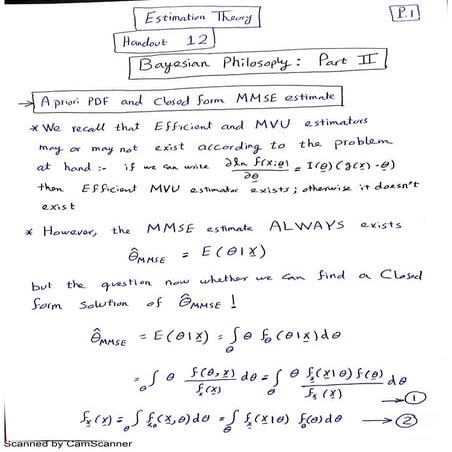 Estimation Theory
P.1
Handout 12
Bayesian Philosophy: Part II
→ A priori PDF and Closed form MMSE estimate
* We recall that Efficient and MVU estimators
may or may not exist according to the problem
at hand :- if we can write ∂ln f(x;θ)/∂θ = I(θ)(g(x)-θ)
then Efficient MVU estimator exists; otherwise it doesn't
exist
* However, the MMSE estimate ALWAYS exists
θ̂_MMSE = E(θ|x)
but the question now whether we can find a Closed
form solution of θ̂_MMSE !
θ̂_MMSE = E(θ|x) = ∫_θ θ f_θ(θ|x)dθ
= ∫_θ θ f(θ,x)/f_x(x) dθ = ∫_θ θ f_x(x|θ)f(θ)/f_x(x) dθ → ①
f_x(x) = ∫_θ f_xθ(x,θ)dθ = ∫_θ f_x(x|θ) f_θ(θ)dθ → ②
Scanned by CamScanner